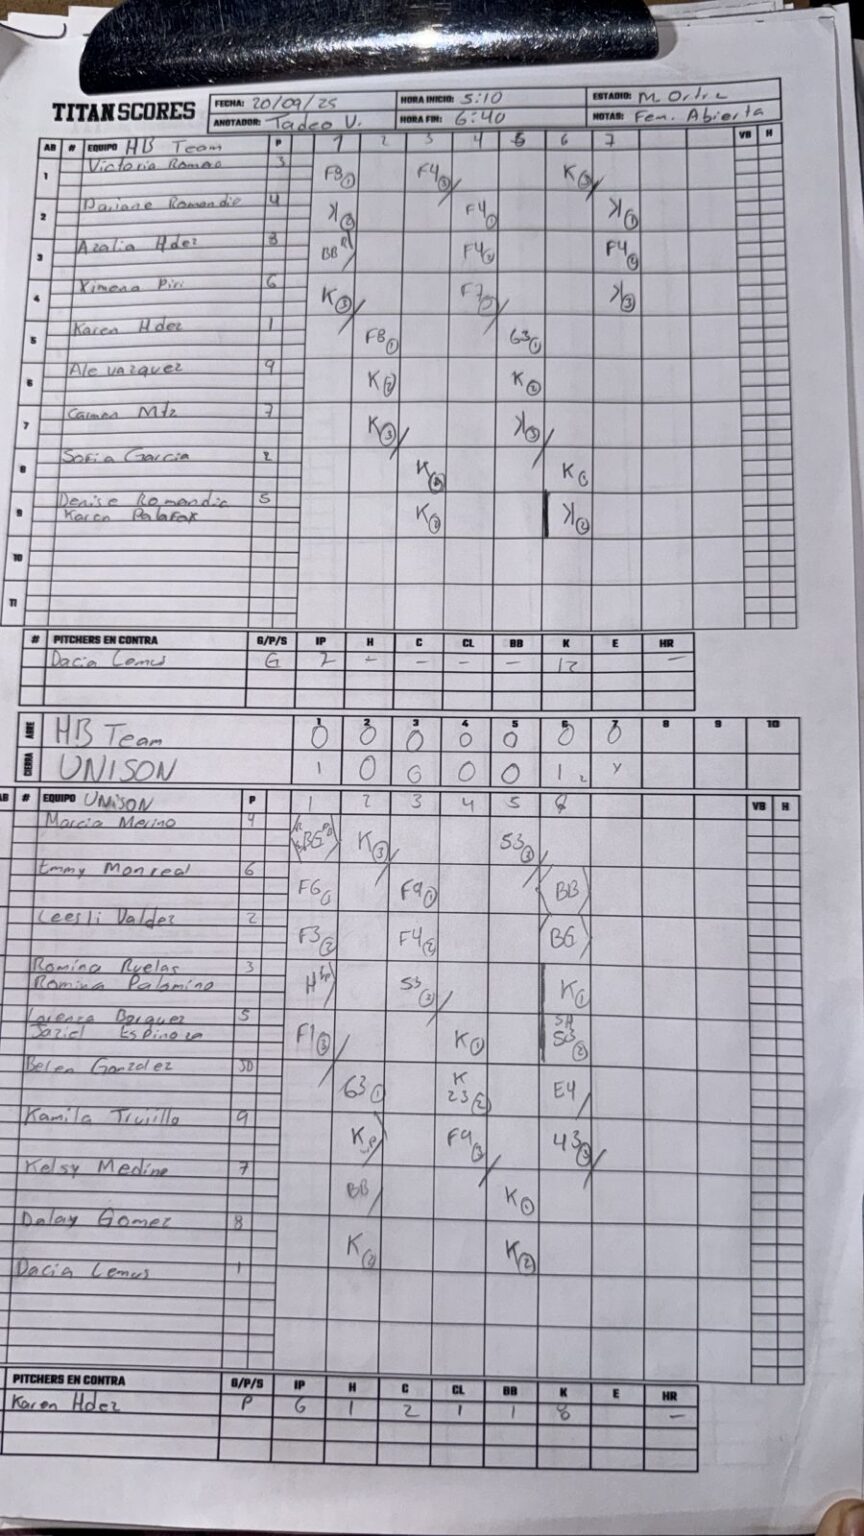 TITAN SCORES
FECHA: 20/09/25 HORA INICIO: 5:10 ESTADIO: M Ortiz
ANOTADOR: Tadeo V. HORA FIN: 6:40 NOTAS: Fem. Abierta
AB # EQUIPO HB Team P 1 2 3 4 5 6 7 VB H
1 Victoria Romao 3 F8① F4③ K③
2 Daiane Romandic 4 K② F4① K①
3 Azalia Hdez 8 BB F4② F4②
4 Ximena Piri 6 K③ F7③ K③
5 Karen Hdez 1 F8① 63①
6 Ale Vazquez 9 K② K②
7 Carmen Mtz 7 K③ K③
8 Sofia Garcia 2 K① K①
9 Denise Romandic 5 K② K②
Karen Palafox
10
11
# PITCHERS EN CONTRA G/P/S IP H C CL BB K E HR
Dacia Lemus G 7 - - - - 12 -
1 2 3 4 5 6 7 8 9 10
ABRE HB Team 0 0 0 0 0 0 0
CIERRA UNISON 1 0 0 0 0 1 x
AB # EQUIPO UNISON P 1 2 3 4 5 6 VB H
Marcia Merino 4 BG K③ 53③
Emmy Monreal 6 F6 F9① BB
Leesli Valdez 2 F3② F4② BG
Romina Ruelas 3 H 53③ K①
Romina Palomino
Lorenza Bojorquez 5 F1③ K① SH 53②
Jaziel Espinoza
Belen Gonzalez JD 63① K 23② E4
Kamila Trujillo 9 K F9③ 43③
Kelsy Medina 7 BB K①
Dalay Gomez 8 K② K②
Dacia Lemus 1
PITCHERS EN CONTRA G/P/S IP H C CL BB K E HR
Karen Hdez P 6 1 2 1 1 8 -